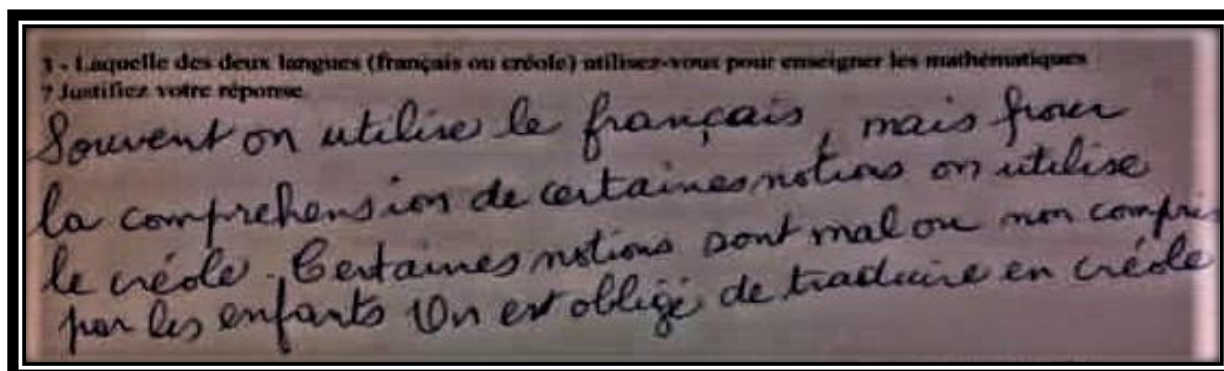 3 - Laquelle des deux langues (français ou créole) utilisez-vous pour enseigner les mathématiques
? Justifiez votre réponse
Souvent on utilise le français, mais pour
la comprehension de certaines notions on utilise
le créole. Certaines notions sont mal ou non compris
par les enfants On est obligé de traduire en créole